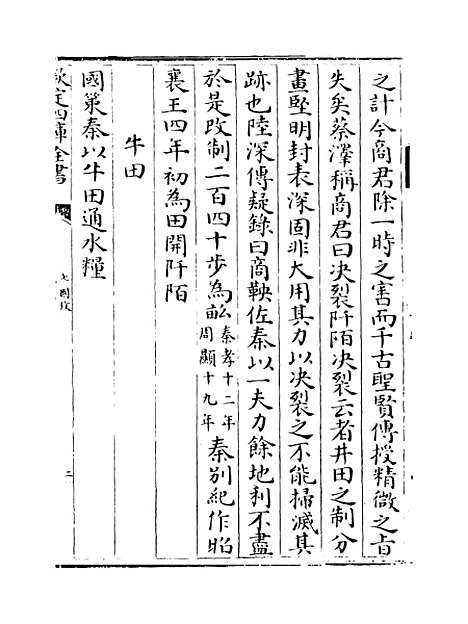 之計今商君除一時之害而千古聖賢傳授精微之㫖
失矣蔡澤稱商君曰决裂阡陌决裂云者井田之制分
畫堅明封表深固非大用其力以决裂之不能掃滅其
跡也陸深傳疑錄曰商鞅佐秦以一夫力餘地利不盡
於是改制二百四十步為畝秦孝十二年周顯十九年秦别紀作昭
襄王四年初為田開阡陌
牛田
國策秦以牛田通水糧
欽定四庫全書
七國攷
二